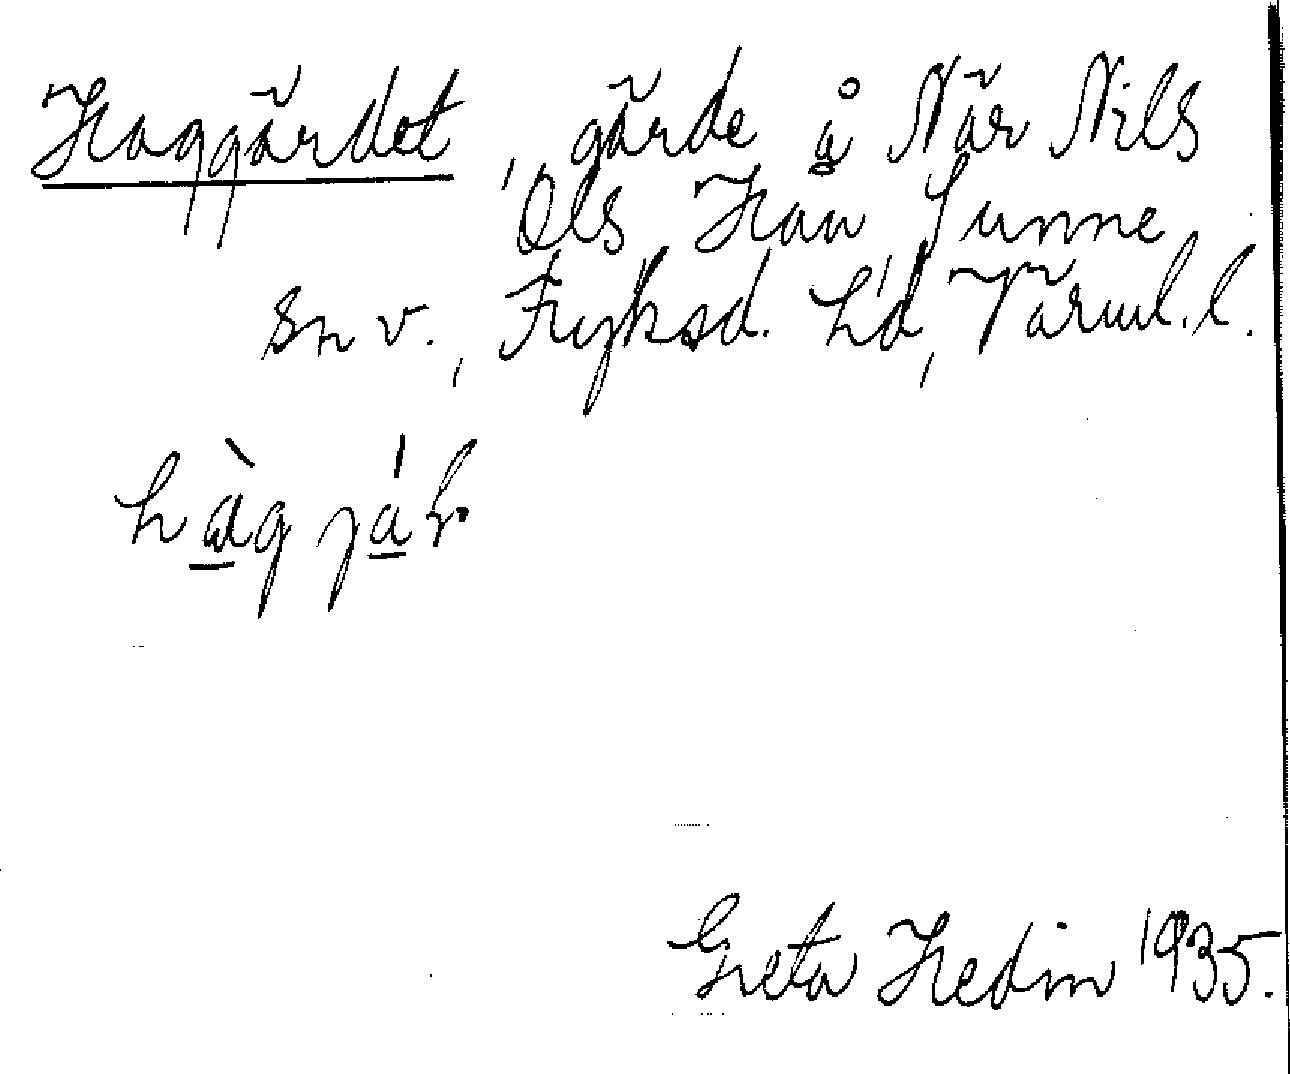 Haggärdet, gärde å När Nils
Ols Haw Sunne
sn v., Fryksd. hd, Värml. l.
hàg já
Greta Hedin 1935.